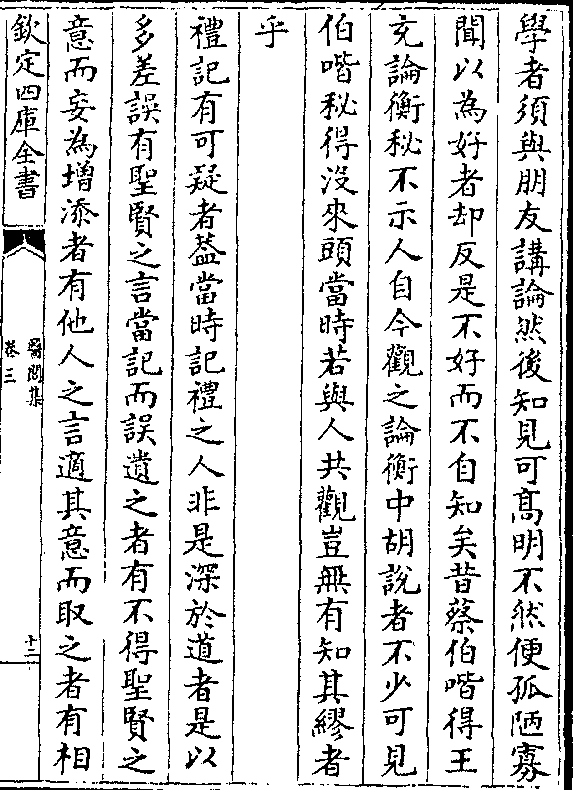 學者須與朋友講論然後知見可髙明不然便孤陋寡
聞以為好者却反是不好而不自知矣昔蔡伯喈得王
充論衡秘不示人自今觀之論衡中胡說者不少可見
伯喈秘得沒來頭當時若與人共觀豈無有知其繆者
乎
禮記有可疑者葢當時記禮之人非是深於道者是以
多差誤有聖賢之言當記而誤遺之者有不得聖賢之
意而妄為增添者有他人之言適其意而取之者有相
欽定四庫全書
醫閭集
卷三
十二